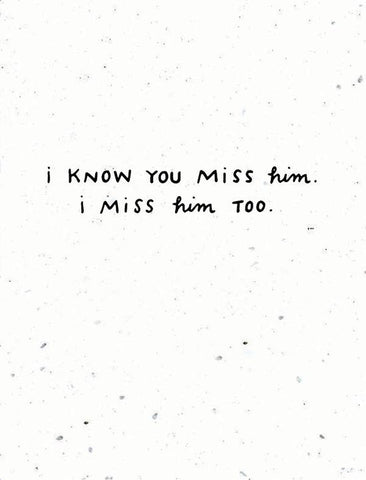 i KNOW YOU MiSS him.
i MiSS him TOO.